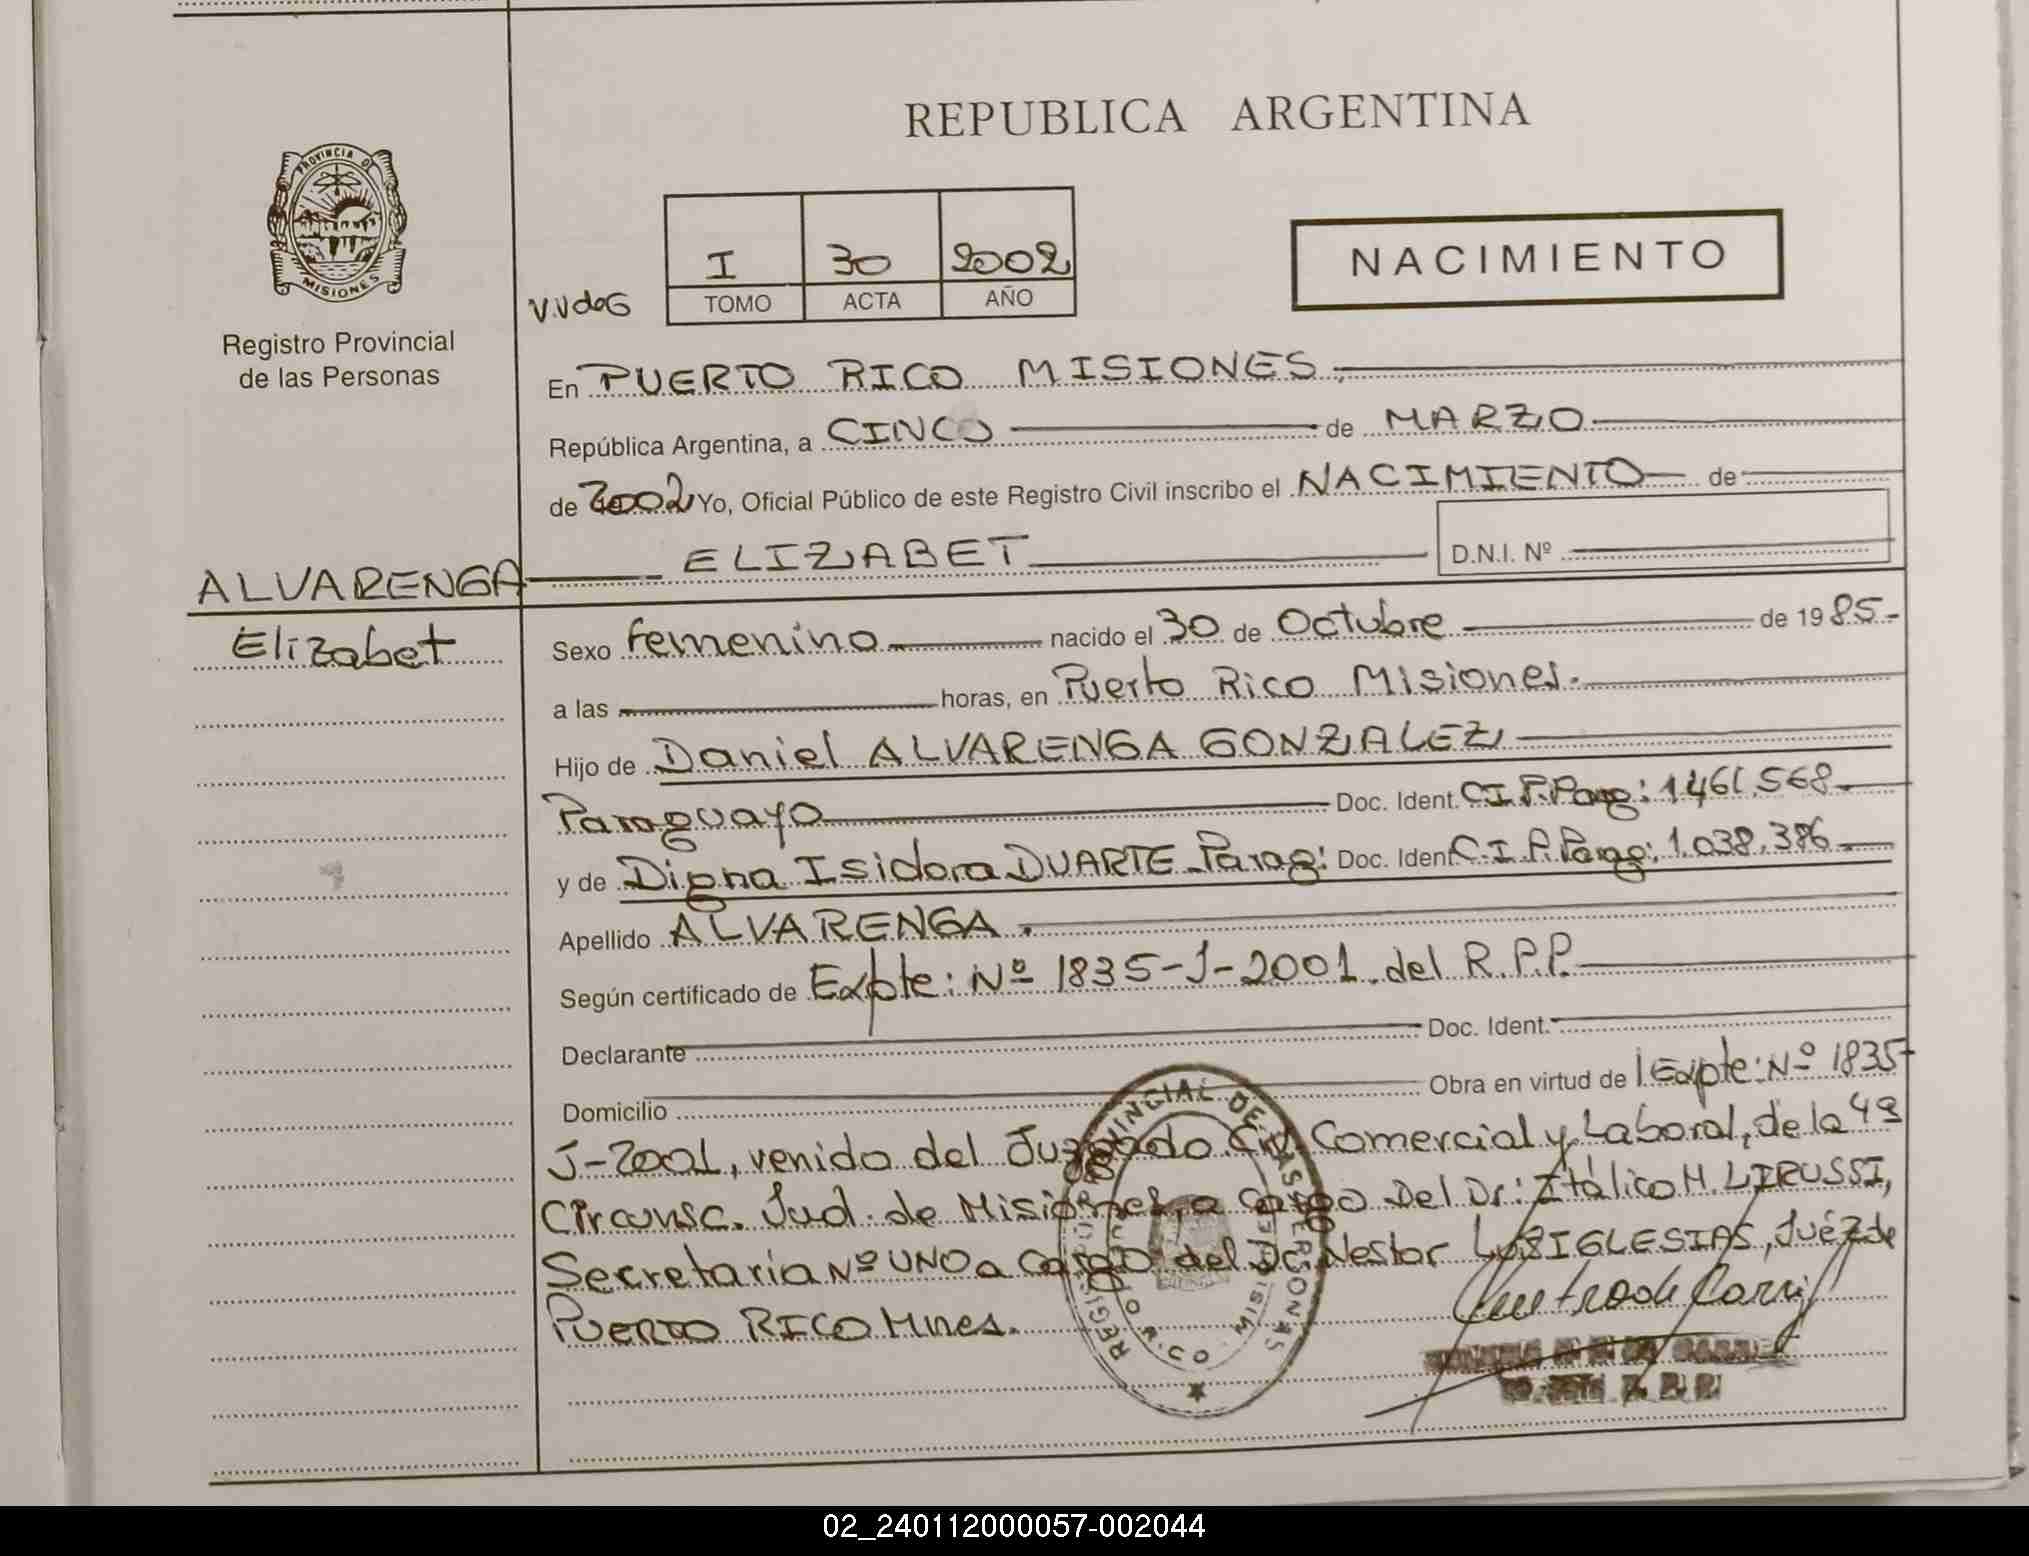 REPUBLICA ARGENTINA
PROVINCIA DE
MISIONES
Registro Provincial
de las Personas
I 30 2002
TOMO ACTA AÑO
V.VdoG
NACIMIENTO
En PUERTO RICO MISIONES.
República Argentina, a CINCO de MARZO
de 2002 Yo, Oficial Público de este Registro Civil inscribo el NACIMIENTO de
ELIZABET D.N.I. Nº
ALVARENGA
Elizabet
Sexo femenino nacido el 30 de Octubre de 1985.-
a las horas, en Puerto Rico Misiones.
Hijo de Daniel ALVARENGA GONZALEZ
Paraguayo Doc. Ident. C.I.P.Parag: 1.461.568.
y de Digna Isidora DUARTE-Parag: Doc. Ident C.I.P.Parag: 1.038.386.
Apellido ALVARENGA.
Según certificado de Expte: Nº 1835-J-2001. del R.P.P.
Declarante Doc. Ident.
Domicilio Obra en virtud de Expte: Nº 1835-
J-2001, venido del Juzgado Civ. Comercial y Laboral, de la 4ª
Circunsc. Jud. de Misiones, a cargo Del Dr: Itálico H. LIRUSSI,
Secretaria Nº UNO a cargo del Dr. Nestor Luis IGLESIAS, Juéz de
PUERTO RICO Mnes.
REGISTRO PROVINCIAL DE LAS PERSONAS
02_240112000057-002044